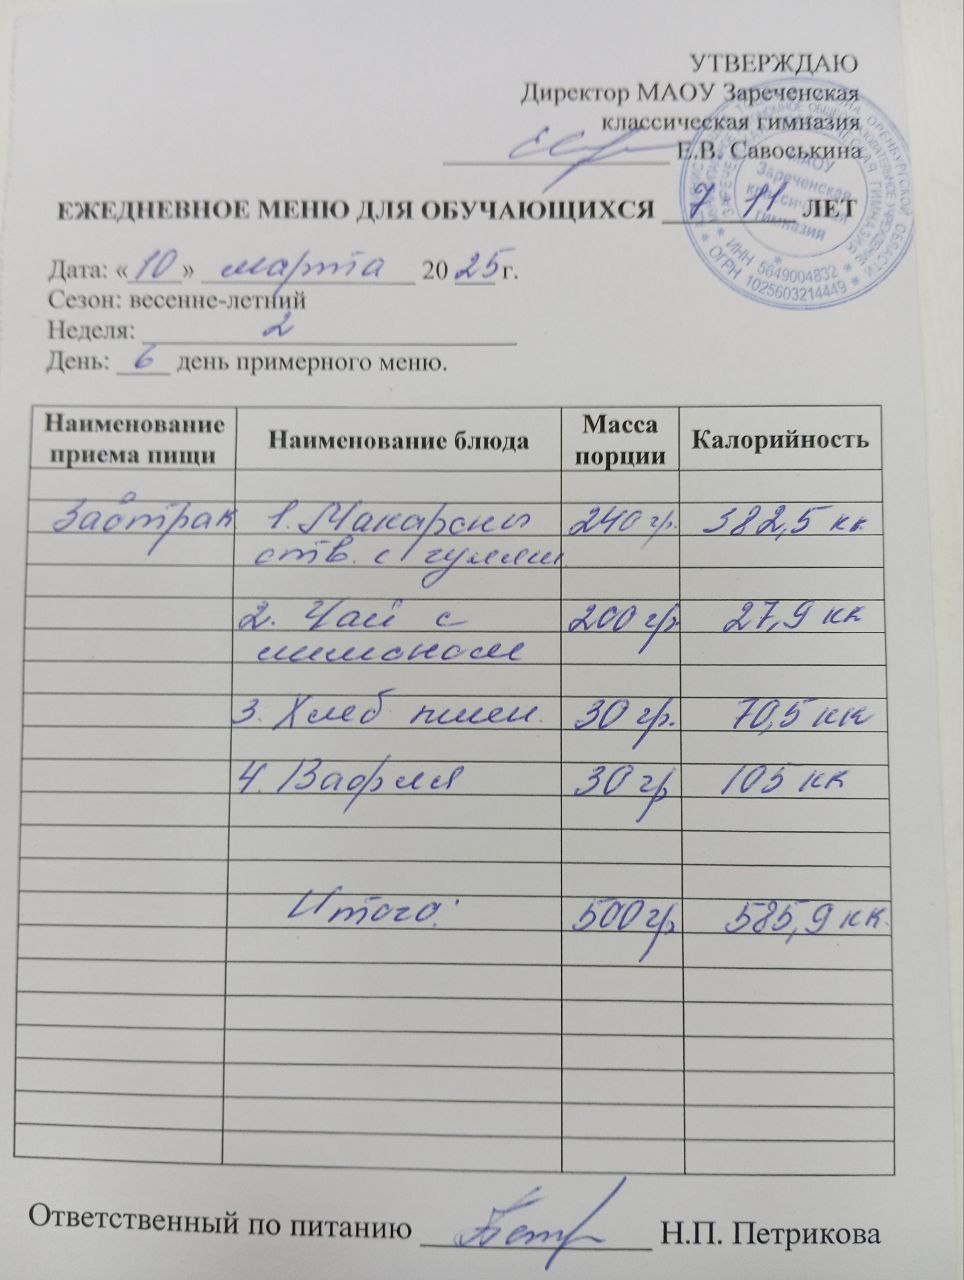 УТВЕРЖДАЮ
Директор МАОУ Зареченская
классическая гимназия
Е.В. Савоськина
МАОУ
Зареченская
классическая
гимназия
ИНН 5649004832
ОГРН 1025603214449
ЕЖЕДНЕВНОЕ МЕНЮ ДЛЯ ОБУЧАЮЩИХСЯ 7 11 ЛЕТ
Дата: «10» марта 2025 г.
Сезон: весенне-летний
Неделя: 2
День: 6 день примерного меню.
Наименование приема пищи Наименование блюда Масса порции Калорийность
Завтрак 1. Макароны 240 гр. 382,5 кк
отв. с гуляш
2. Чай с 200 гр. 27,9 кк
лимоном
3. Хлеб пшен. 30 гр. 70,5 кк
4. Вафля 30 гр 105 кк
Итого: 500 гр 585,9 кк.
Ответственный по питанию Н.П. Петрикова